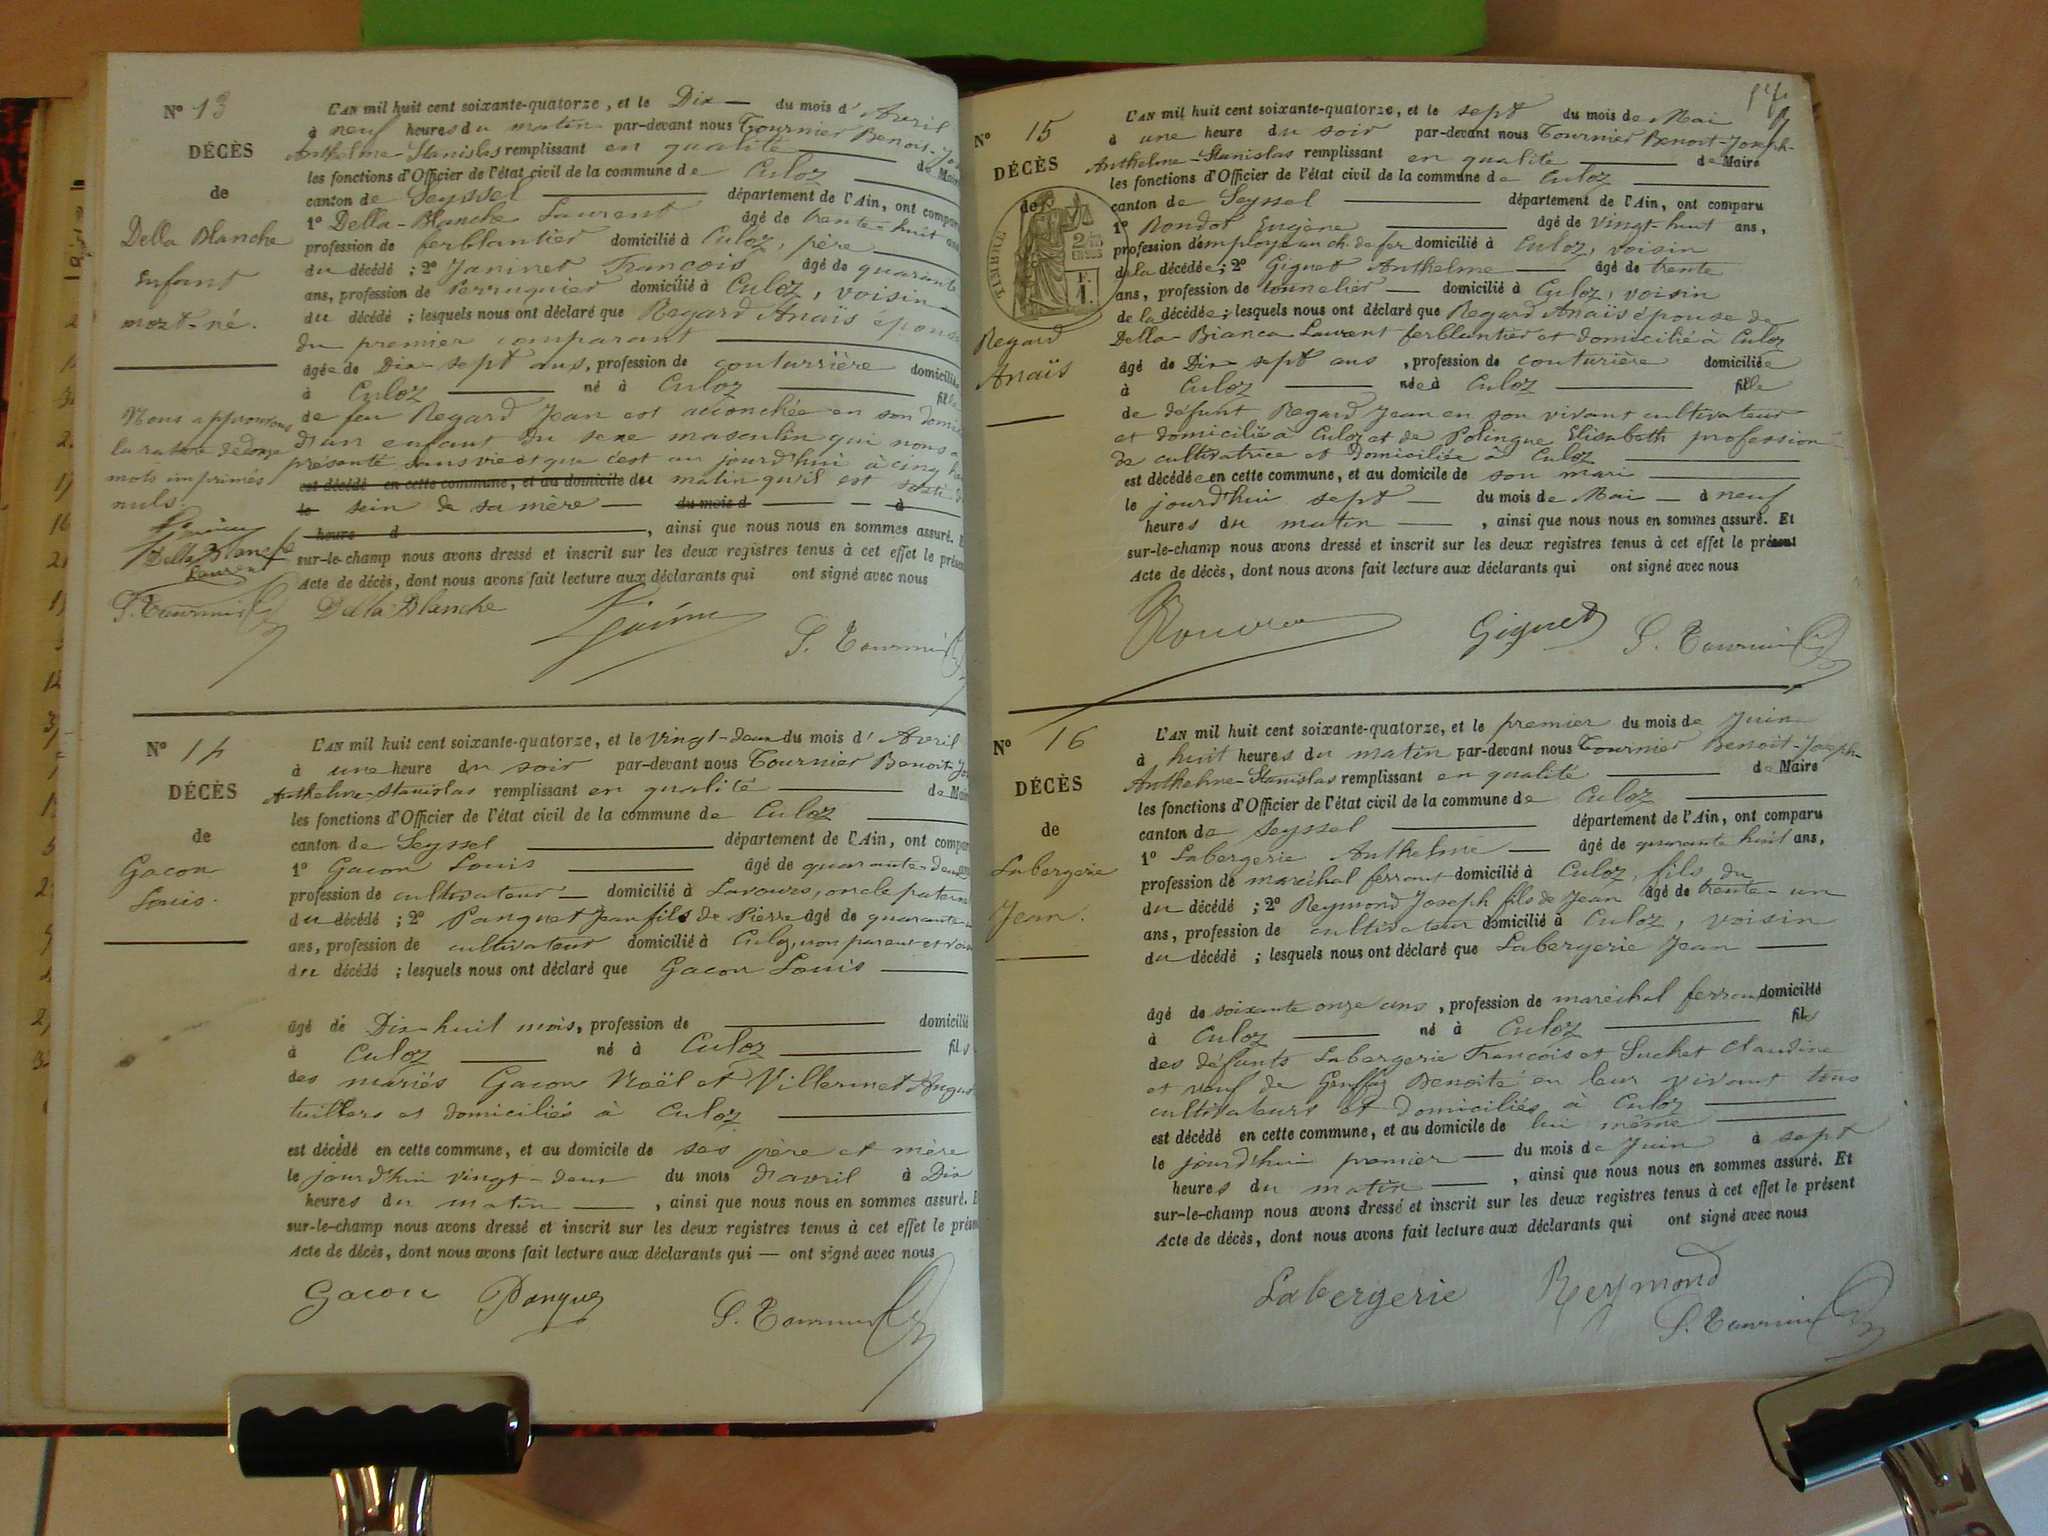 N° 13
DÉCÈS
de
Della Blanche
Enfant
mort-né.
Nous approuvons
la rature de douze
mots imprimés
nuls.
Della Blanche
Laurent
L'AN mil huit cent soixante-quatorze, et le Dix du mois d'Avril
à neuf heures du matin par-devant nous Tournier Benoit-Jos
Anthelme-Stanislas remplissant en qualité de Maire
les fonctions d'Officier de l'état civil de la commune de Culoz
canton de Seyssel département de l'Ain, ont comparu
1° Della-Blanche Laurent âgé de trente-huit ans
profession de ferblantier domicilié à Culoz, père
du décédé ; 2° Janinet François âgé de quarante
ans, profession de Perruquier domicilié à Culoz, voisin
du décédé ; lesquels nous ont déclaré que Regard Anaïs épouse
du premier comparant
âgée de Dix-sept ans, profession de couturrière domiciliée
à Culoz né à Culoz fille
de feu Regard Jean est accouchée en son domi
d'un enfant du sexe masculin qui nous a
présenté sans vie et que c'est au jourd'hui à cinq h
est décédé en cette commune, et au domicile de du matin qu'il est sorti d
le sein de sa mère du mois d à
heure d , ainsi que nous nous en sommes assuré. E
sur-le-champ nous avons dressé et inscrit sur les deux registres tenus à cet effet le présen
Acte de décès, dont nous avons fait lecture aux déclarants qui ont signé avec nous
S. Tournier Della-Blanche
S. Tournier
N° 14
DÉCÈS
de
Gacon
Louis.
L'AN mil huit cent soixante-quatorze, et le vingt-deux du mois d'Avril
à une heure du soir par-devant nous Tournier Benoit-Jo
Anthelme-Stanislas remplissant en qualité de Mair
les fonctions d'Officier de l'état civil de la commune de Culoz
canton de Seyssel département de l'Ain, ont compar
1° Gacon Louis âgé de quarante-deux ans
profession de cultivateur domicilié à Lavours, oncle patern
du décédé ; 2° Panguet Jean fils de Pierre âgé de quarante-
ans, profession de cultivateur domicilié à Culoz, non parent et voi
du décédé ; lesquels nous ont déclaré que Gacon Louis
âgé de Dix-huit mois, profession de domicilié
à Culoz né à Culoz fils
des mariés Gacon Noël et Villermet August
tuiliers et domiciliés à Culoz
est décédé en cette commune, et au domicile de ses père et mère
le jourd'hui vingt-deux du mois d'avril à Dix
heures du matin , ainsi que nous nous en sommes assuré. E
sur-le-champ nous avons dressé et inscrit sur les deux registres tenus à cet effet le présen
Acte de décès, dont nous avons fait lecture aux déclarants qui — ont signé avec nous
Gacon Panguet
S. Tournier
N° 15
DÉCÈS
de
TIMBRE
Regard
Anaïs
L'AN mil huit cent soixante-quatorze, et le sept du mois de Mai
à une heure du soir par-devant nous Tournier Benoit-Joseph-
Anthelme-Stanislas remplissant en qualité de Maire
les fonctions d'Officier de l'état civil de la commune de Culoz
canton de Seyssel département de l'Ain, ont comparu
1° Rondot Eugène âgé de vingt-huit ans,
profession d'employé au ch. de fer domicilié à Culoz, voisin
de la décédée ; 2° Giguet Anthelme âgé de trente
ans, profession de tonnelier domicilié à Culoz, voisin
de la décédée ; lesquels nous ont déclaré que Regard Anaïs épouse de
Della-Bianca Laurent ferblantier et domicilié à Culoz
âgé de Dix-sept ans , profession de couturière domiciliée
à Culoz née à Culoz fille
de défunt Regard Jean en son vivant cultivateur
et domicilié à Culoz et de Polingue Elisabeth profession
de cultivatrice et domiciliée à Culoz
est décédée en cette commune, et au domicile de son mari
le jourd'hui sept du mois de Mai à neuf
heures du matin , ainsi que nous nous en sommes assuré. Et
sur-le-champ nous avons dressé et inscrit sur les deux registres tenus à cet effet le présent
Acte de décès, dont nous avons fait lecture aux déclarants qui ont signé avec nous
Giguet S. Tournier
N° 16
DÉCÈS
de
Labergerie
Jean.
L'AN mil huit cent soixante-quatorze, et le premier du mois de Juin
à huit heures du matin par-devant nous Tournier Benoit-Joseph-
Anthelme-Stanislas remplissant en qualité de Maire
les fonctions d'Officier de l'état civil de la commune de Culoz
canton de Seyssel département de l'Ain, ont comparu
1° Labergerie Anthelme âgé de quarante huit ans,
profession de maréchal ferrant domicilié à Culoz, fils du
du décédé ; 2° Reymond Joseph fils de Jean âgé de trente-un
ans, profession de cultivateur domicilié à Culoz, voisin
du décédé ; lesquels nous ont déclaré que Labergerie Jean
âgé de soixante onze ans , profession de maréchal ferrant domicilié
à Culoz né à Culoz fils
des défunts Labergerie François et Suchet Claudine
et veuf de Benoite en leur vivant tous
cultivateurs et domiciliés à Culoz
est décédé en cette commune, et au domicile de lui même
le jourd'hui premier du mois de Juin à sept
heures du matin , ainsi que nous nous en sommes assuré. Et
sur-le-champ nous avons dressé et inscrit sur les deux registres tenus à cet effet le présent
Acte de décès, dont nous avons fait lecture aux déclarants qui ont signé avec nous
Labergerie Reymond
S. Tournier